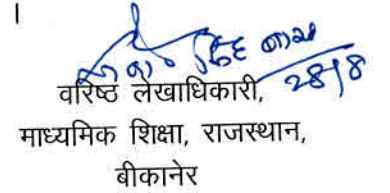 ।
28/8
वरिष्ठ लेखाधिकारी,
माध्यमिक शिक्षा, राजस्थान,
बीकानेर